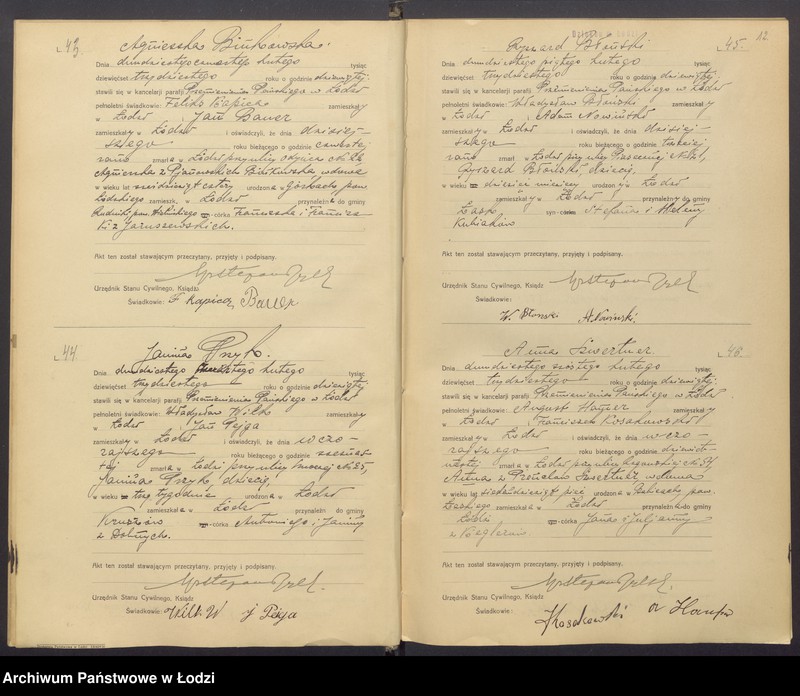 43
Agnieszka Bińkowska.
Dnia dwudziestego czwartego lutego tysiąc
dziewięćset trzydziestego roku o godzinie dziewiątej
stawili się w kancelarji parafji Przemienienia Pańskiego w Łodzi
pełnoletni świadkowie: Feliks Kapica zamieszkały
w Łodzi i Jan Bauer
zamieszkały w Łodzi i oświadczyli, że dnia dzisiej-
szego roku bieżącego o godzinie czwartej
rano zmarła w Łodzi przy ulicy
Agnieszka z Bińkowska, wdowa
w wieku lat sześćdziesiąt cztery urodzona w Górkach, pow.
Łódzkiego zamieszk. w Łodzi przynależna do gminy
córka Franciszka i Francisz-
ki z Jaruszewskich.
Akt ten został stawającym przeczytany, przyjęty i podpisany.
Urzędnik Stanu Cywilnego, Ksiądz
Świadkowie: F Kapica Bauer
44
Janina Pryk.
Dnia dwudziestego lutego tysiąc
dziewięćset trzydziestego roku o godzinie dziewiątej
stawili się w kancelarji parafji Przemienienia Pańskiego w Łodzi
pełnoletni świadkowie: Władysław Wilk zamieszkały
w Łodzi Jan Pejga
zamieszkały w Łodzi i oświadczyli, że dnia wczo-
rajszego roku bieżącego o godzinie szesnas-
tej zmarła w Łodzi przy ulicy
Janina Pryk, dziecię,
w wieku trzy tygodnie urodzona w Łodzi
zamieszkała w Łodzi przynależn do gminy
Kruszów córka Antoniego i Janiny
z Dolnych.
Akt ten został stawającym przeczytany, przyjęty i podpisany.
Urzędnik Stanu Cywilnego, Ksiądz
Świadkowie: Wilk W J Pejga
45. 12
Ryszard Błoński
Dnia dwudziestego piątego lutego tysiąc
dziewięćset trzydziestego roku o godzinie dziewiątej
stawili się w kancelarji parafji Przemienienia Pańskiego w Łodzi
pełnoletni świadkowie: Władysław Błoński zamieszkały
w Łodzi i Adam Nowiński
zamieszkały w Łodzi i oświadczyli, że dnia dzisiej-
szego roku bieżącego o godzinie trzeciej
rano zmarł w Łodzi przy ulicy
Ryszard Błoński, dziecię,
w wieku dziesięć miesięcy urodzony w Łodzi
zamieszkały w Łodzi przynależny do gminy
Łask syn Stefana i Heleny
Kubisków
Akt ten został stawającym przeczytany, przyjęty i podpisany.
Urzędnik Stanu Cywilnego, Ksiądz
Świadkowie:
W. Błonski A. Nowiński.
46.
Anna Szwertner.
Dnia dwudziestego szóstego lutego tysiąc
dziewięćset trzydziestego roku o godzinie dziewiątej
stawili się w kancelarji parafji Przemienienia Pańskiego w Łodzi
pełnoletni świadkowie: August zamieszkały
w Łodzi i Franciszek Kosakowski
zamieszkały w Łodzi i oświadczyli, że dnia wczo-
rajszego roku bieżącego o godzinie
zmarła w Łodzi przy ulicy
Anna z Szwertner wdowa
w wieku lat siedmdziesiąt pięć urodzona w pow.
Łaskiego zamieszkała w Łodzi przynależna do gminy
Łódź córka Jana i Juljanny
Akt ten został stawającym przeczytany, przyjęty i podpisany.
Urzędnik Stanu Cywilnego, Ksiądz
Świadkowie: Kosakowski
Archiwum Państwowe w Łodzi